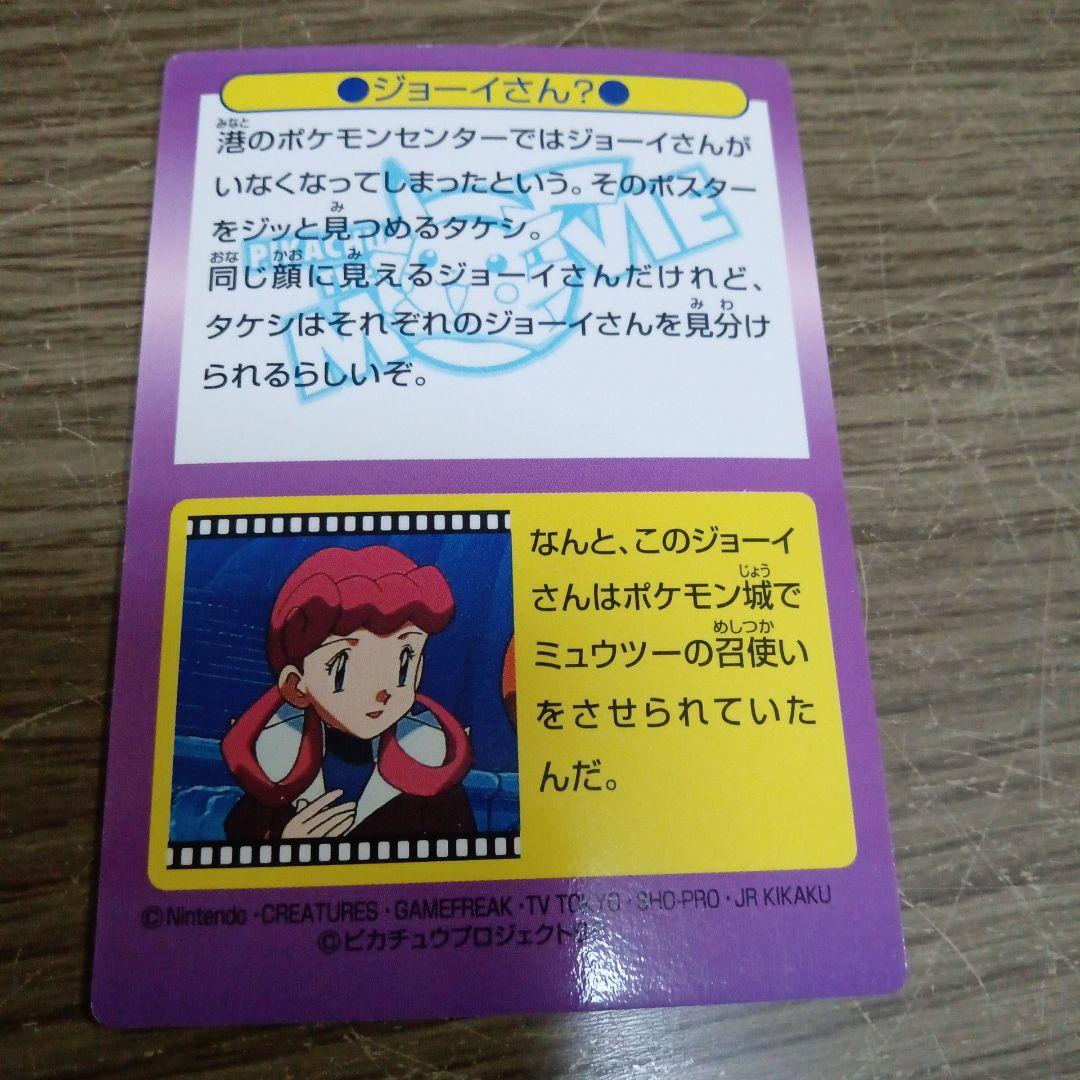 ●ジョーイさん？●
港のポケモンセンターではジョーイさんが
みなと
いなくなってしまったという。そのポスター
をジッと見つめるタケシ。
み
同じ顔に見えるジョーイさんだけれど、
おな かお み
タケシはそれぞれのジョーイさんを見分け
み わ
られるらしいぞ。
PIKACHU
MOVIE
なんと、このジョーイ
さんはポケモン城で
じょう
ミュウツーの召使い
めしつか
をさせられていた
んだ。
©Nintendo・CREATURES・GAMEFREAK・TV TOKYO・SHO-PRO・JR KIKAKU
©ピカチュウプロジェクト